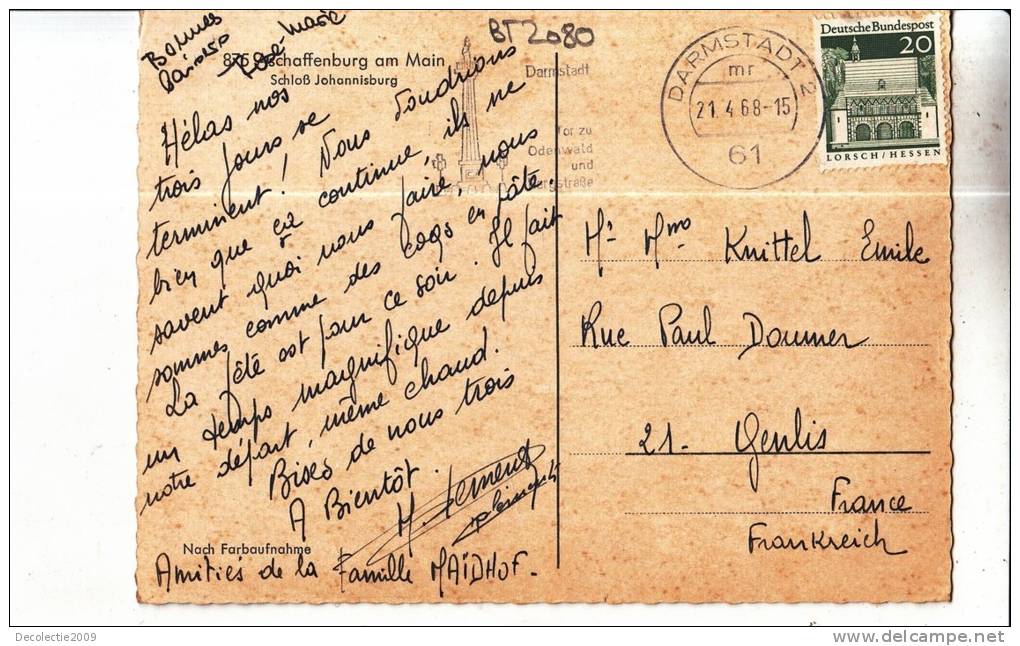 BT2080
Bonnes
Rose Marie
875 Aschaffenburg am Main
Schloß Johannisburg
Hélas nos
trois jours se
terminent! Nous voudrions
bien que ça continue, ils ne
savent quoi nous faire, nous
sommes comme des coqs en pâte.
La fête est pour ce soir. Il fait
un temps magnifique depuis
notre départ, même chaud.
Bises de nous trois
A Bientôt.
Amitiés de la Famille MAÏDHOF-
Nach Farbaufnahme
Darmstadt
Tor zu
Odenwald
und
Bergstraße
DARMSTADT 2
mr
21.4.68-15
61
Deutsche Bundespost
20
LORSCH/HESSEN
Mr Mme Knittel Emile
Rue Paul Doumer
21- Genlis
France
Frankreich
Decolectie2009
www.delcampe.net